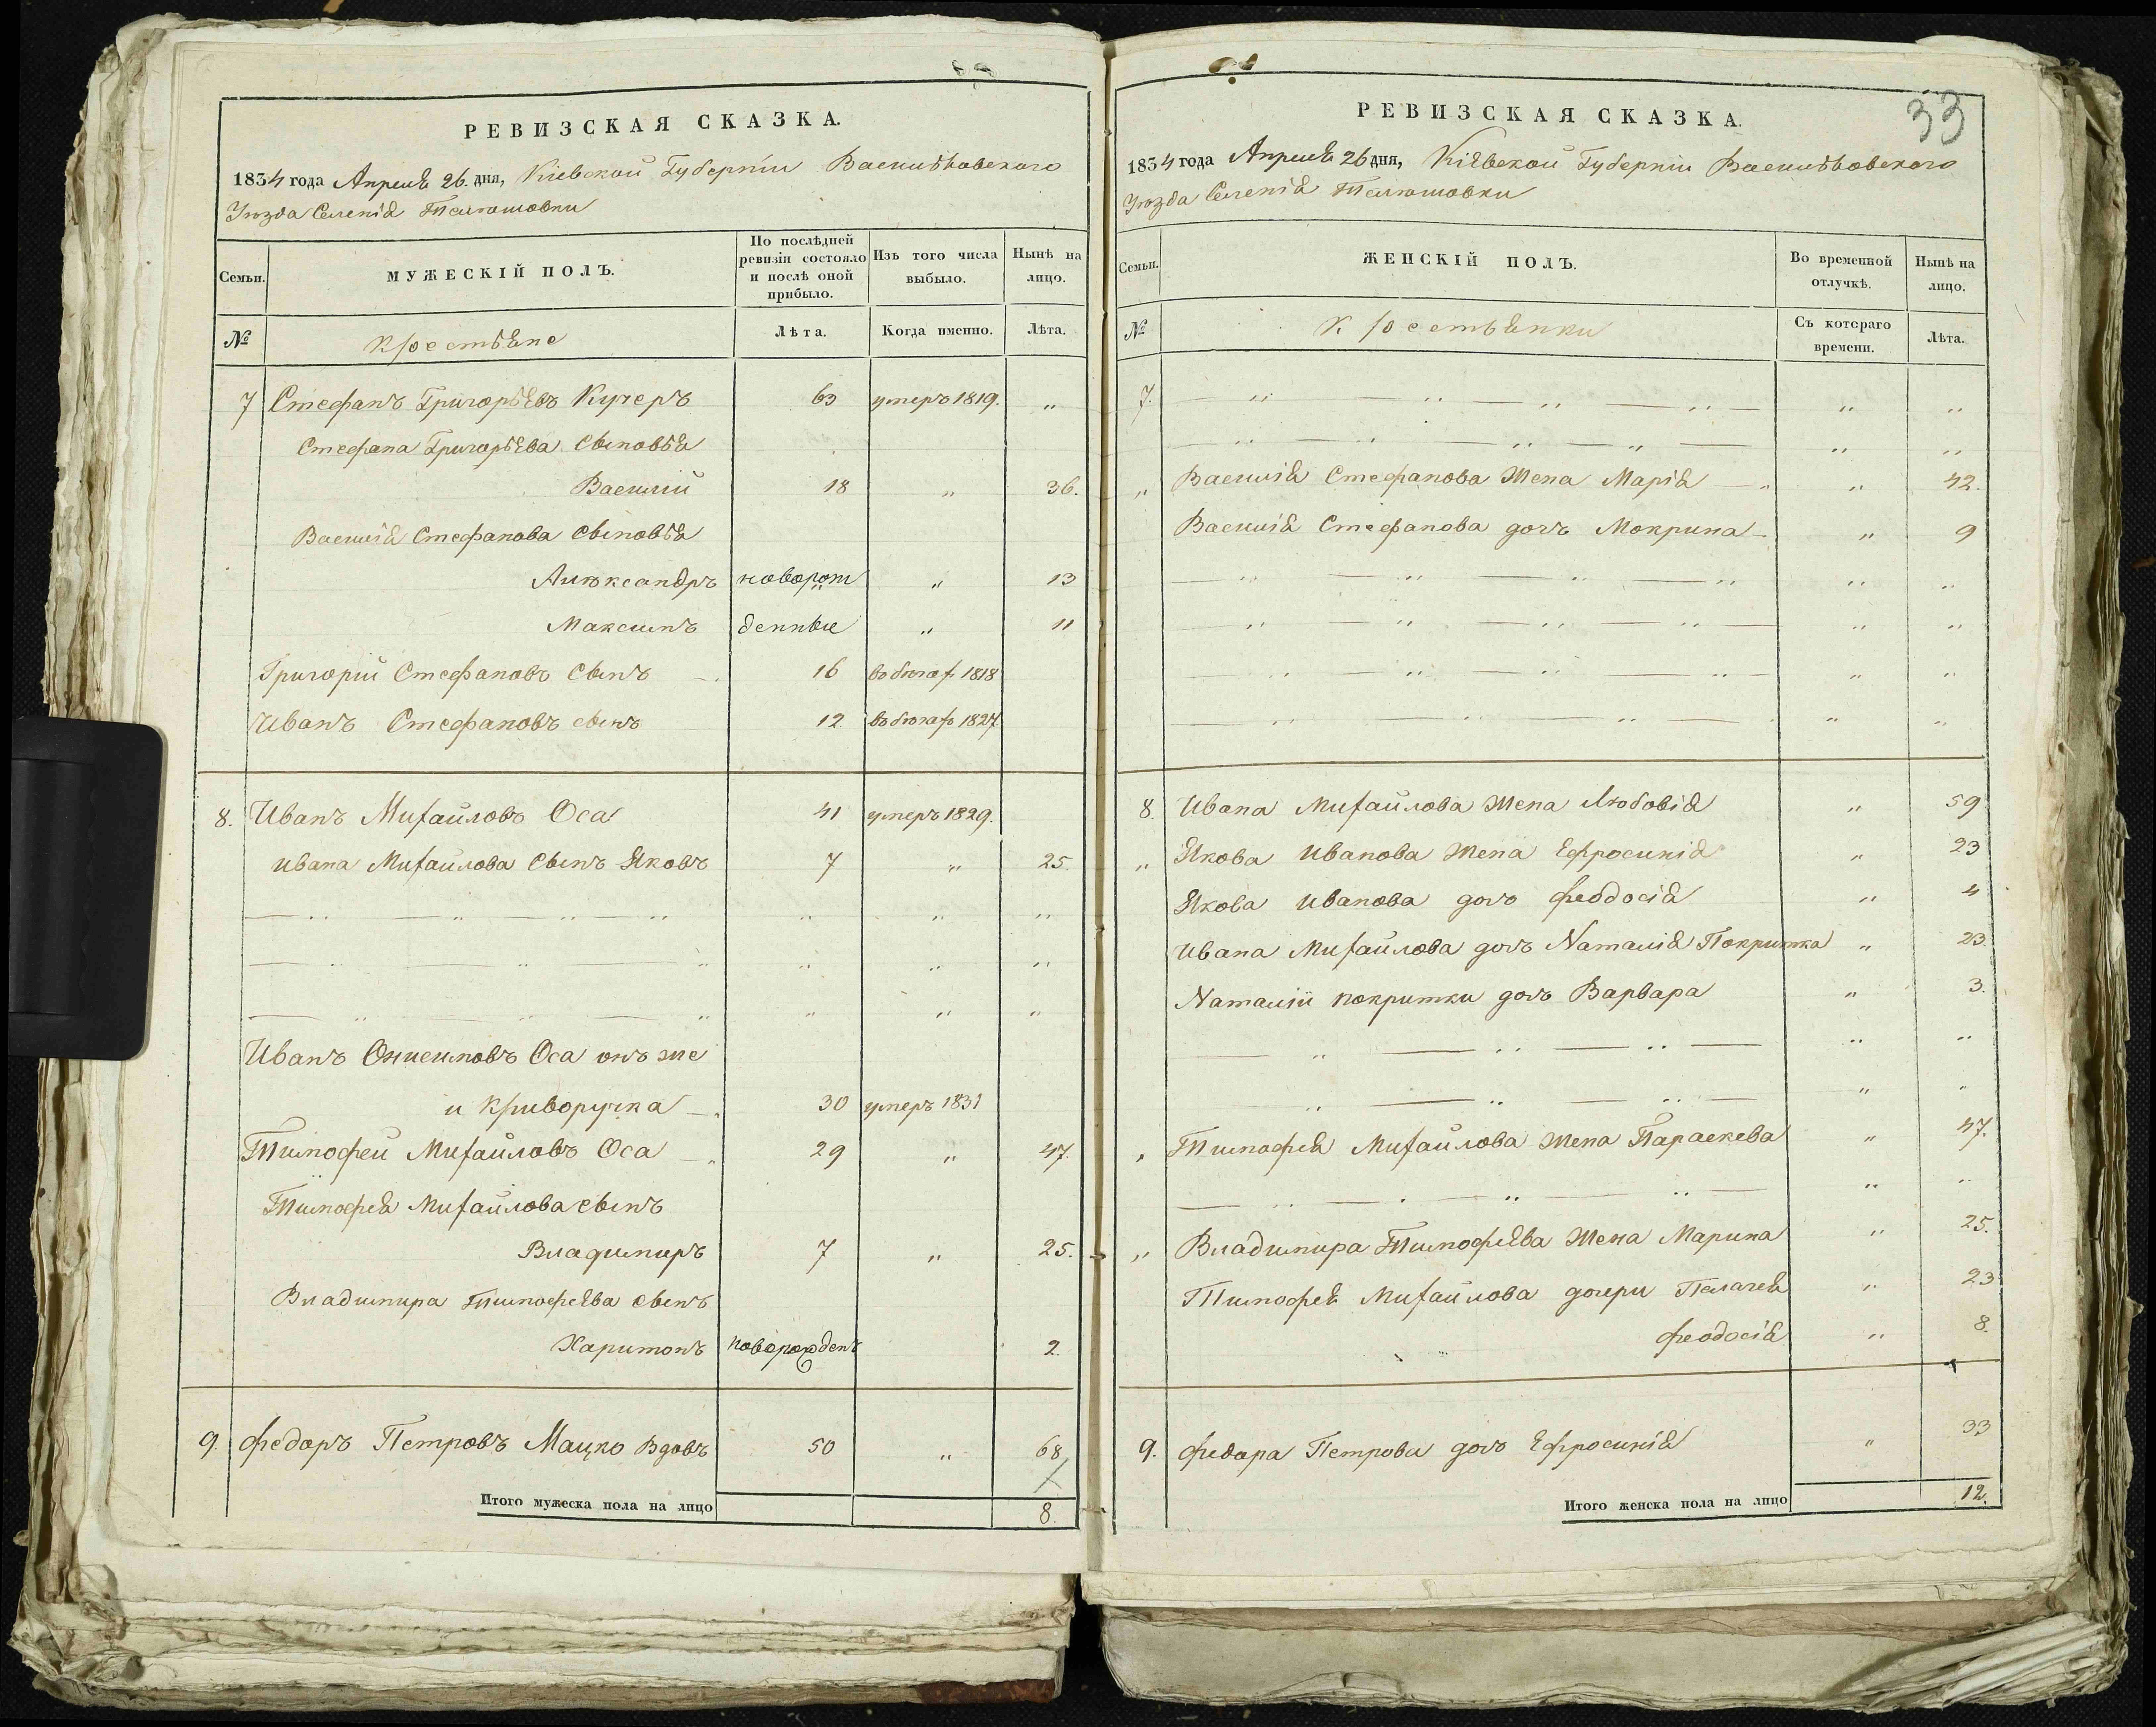 РЕВИЗСКАЯ СКАЗКА.
1834 года Апреля 26. дня, Кіевской Губерніи Васильковского
Уезда Селенія Телюшовки
Семьи.
МУЖЕСКІЙ ПОЛЪ.
По послѣдней
ревизіи состояло
и послѣ оной
прибыло.
Изъ того числа
выбыло.
Нынѣ на
лицо.
№
Крестьяне
Лѣта.
Когда именно.
Лѣта.
7 Стефанъ Григорьевъ Кучеръ 63 умеръ 1819. „
Стефана Григорьева сыновья
Василий 18 „ 36.
Василія Стефанова сыновья
Алѣксандръ новорож „ 13
Максимъ денные „ 11
Григорій Стефановъ сынъ 16 в бегах 1818
Иванъ Стефановъ сынъ 12 в бегах 1827.
8. Иванъ Михайловъ Оса 41 умеръ 1829.
Ивана Михайлова сынъ Яковъ 7 „ 25.
Иванъ Онисимовъ Оса онъ же
и Криворучка 30 умеръ 1831
Тимофей Михайловъ Оса 29 „ 47.
Тимофея Михайлова сынъ
Владимиръ 7 „ 25.
Владимира Тимофеева сынъ
Харитонъ новорожденъ 2.
9. Федоръ Петровъ Мацко вдовъ 50 „ 68
Итого мужеска пола на лицо 8.
33
РЕВИЗСКАЯ СКАЗКА.
1834 года Апреля 26 дня, Кіевской Губерніи Васильковского
Уезда Селенія Телюшовки
Семьи.
ЖЕНСКІЙ ПОЛЪ.
Во временной
отлучкѣ.
Нынѣ на
лицо.
№
Крестьянки
Съ котораго
времени.
Лѣта.
7.
„ Василія Стефанова жена Марія „ 42.
Василія Стефанова дочъ Мокрина „ 9
8. Ивана Михайлова жена Любовія „ 59
„ Якова Иванова жена Ефросинія „ 23
Якова Иванова дочъ Феодосія „ 4
Ивана Михайлова дочъ Наталія Покритка „ 23.
Наталіи покритки дочъ Варвара „ 3.
„ Тимофея Михайлова жена Параскева „ 47.
„ Владимира Тимофеева жена Марина „ 25.
Тимофея Михайлова дочери Пелагея „ 23
Феодосія „ 8.
9. Федора Петрова дочъ Ефросинія „ 33
Итого женска пола на лицо 12.